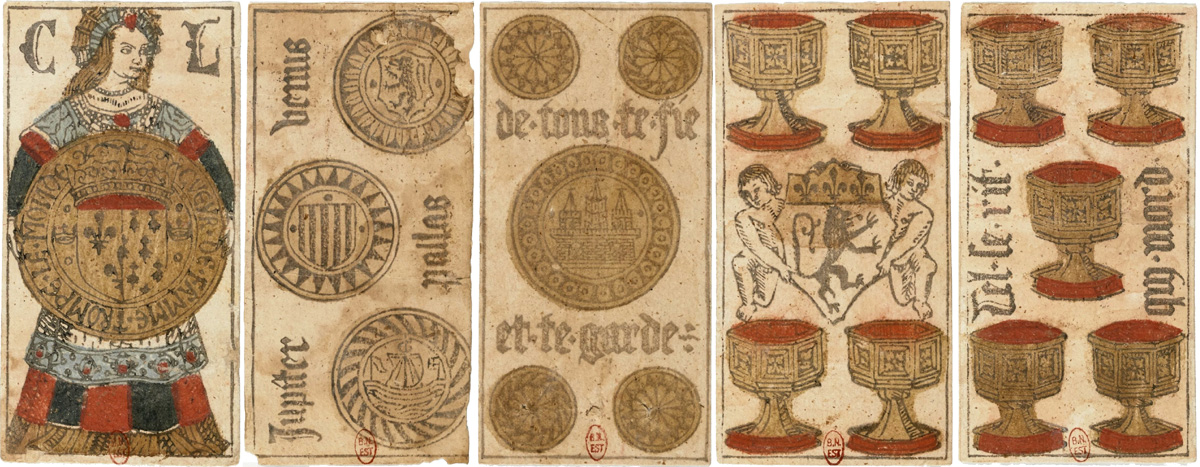 C L
venus
pallas
Jupiter
de·tous·te·fie
et·te·garde
Tel·se·rit·
qui mord
B.N.
EST.
B.N.
EST.
B.N.
EST.
B.N.
EST.